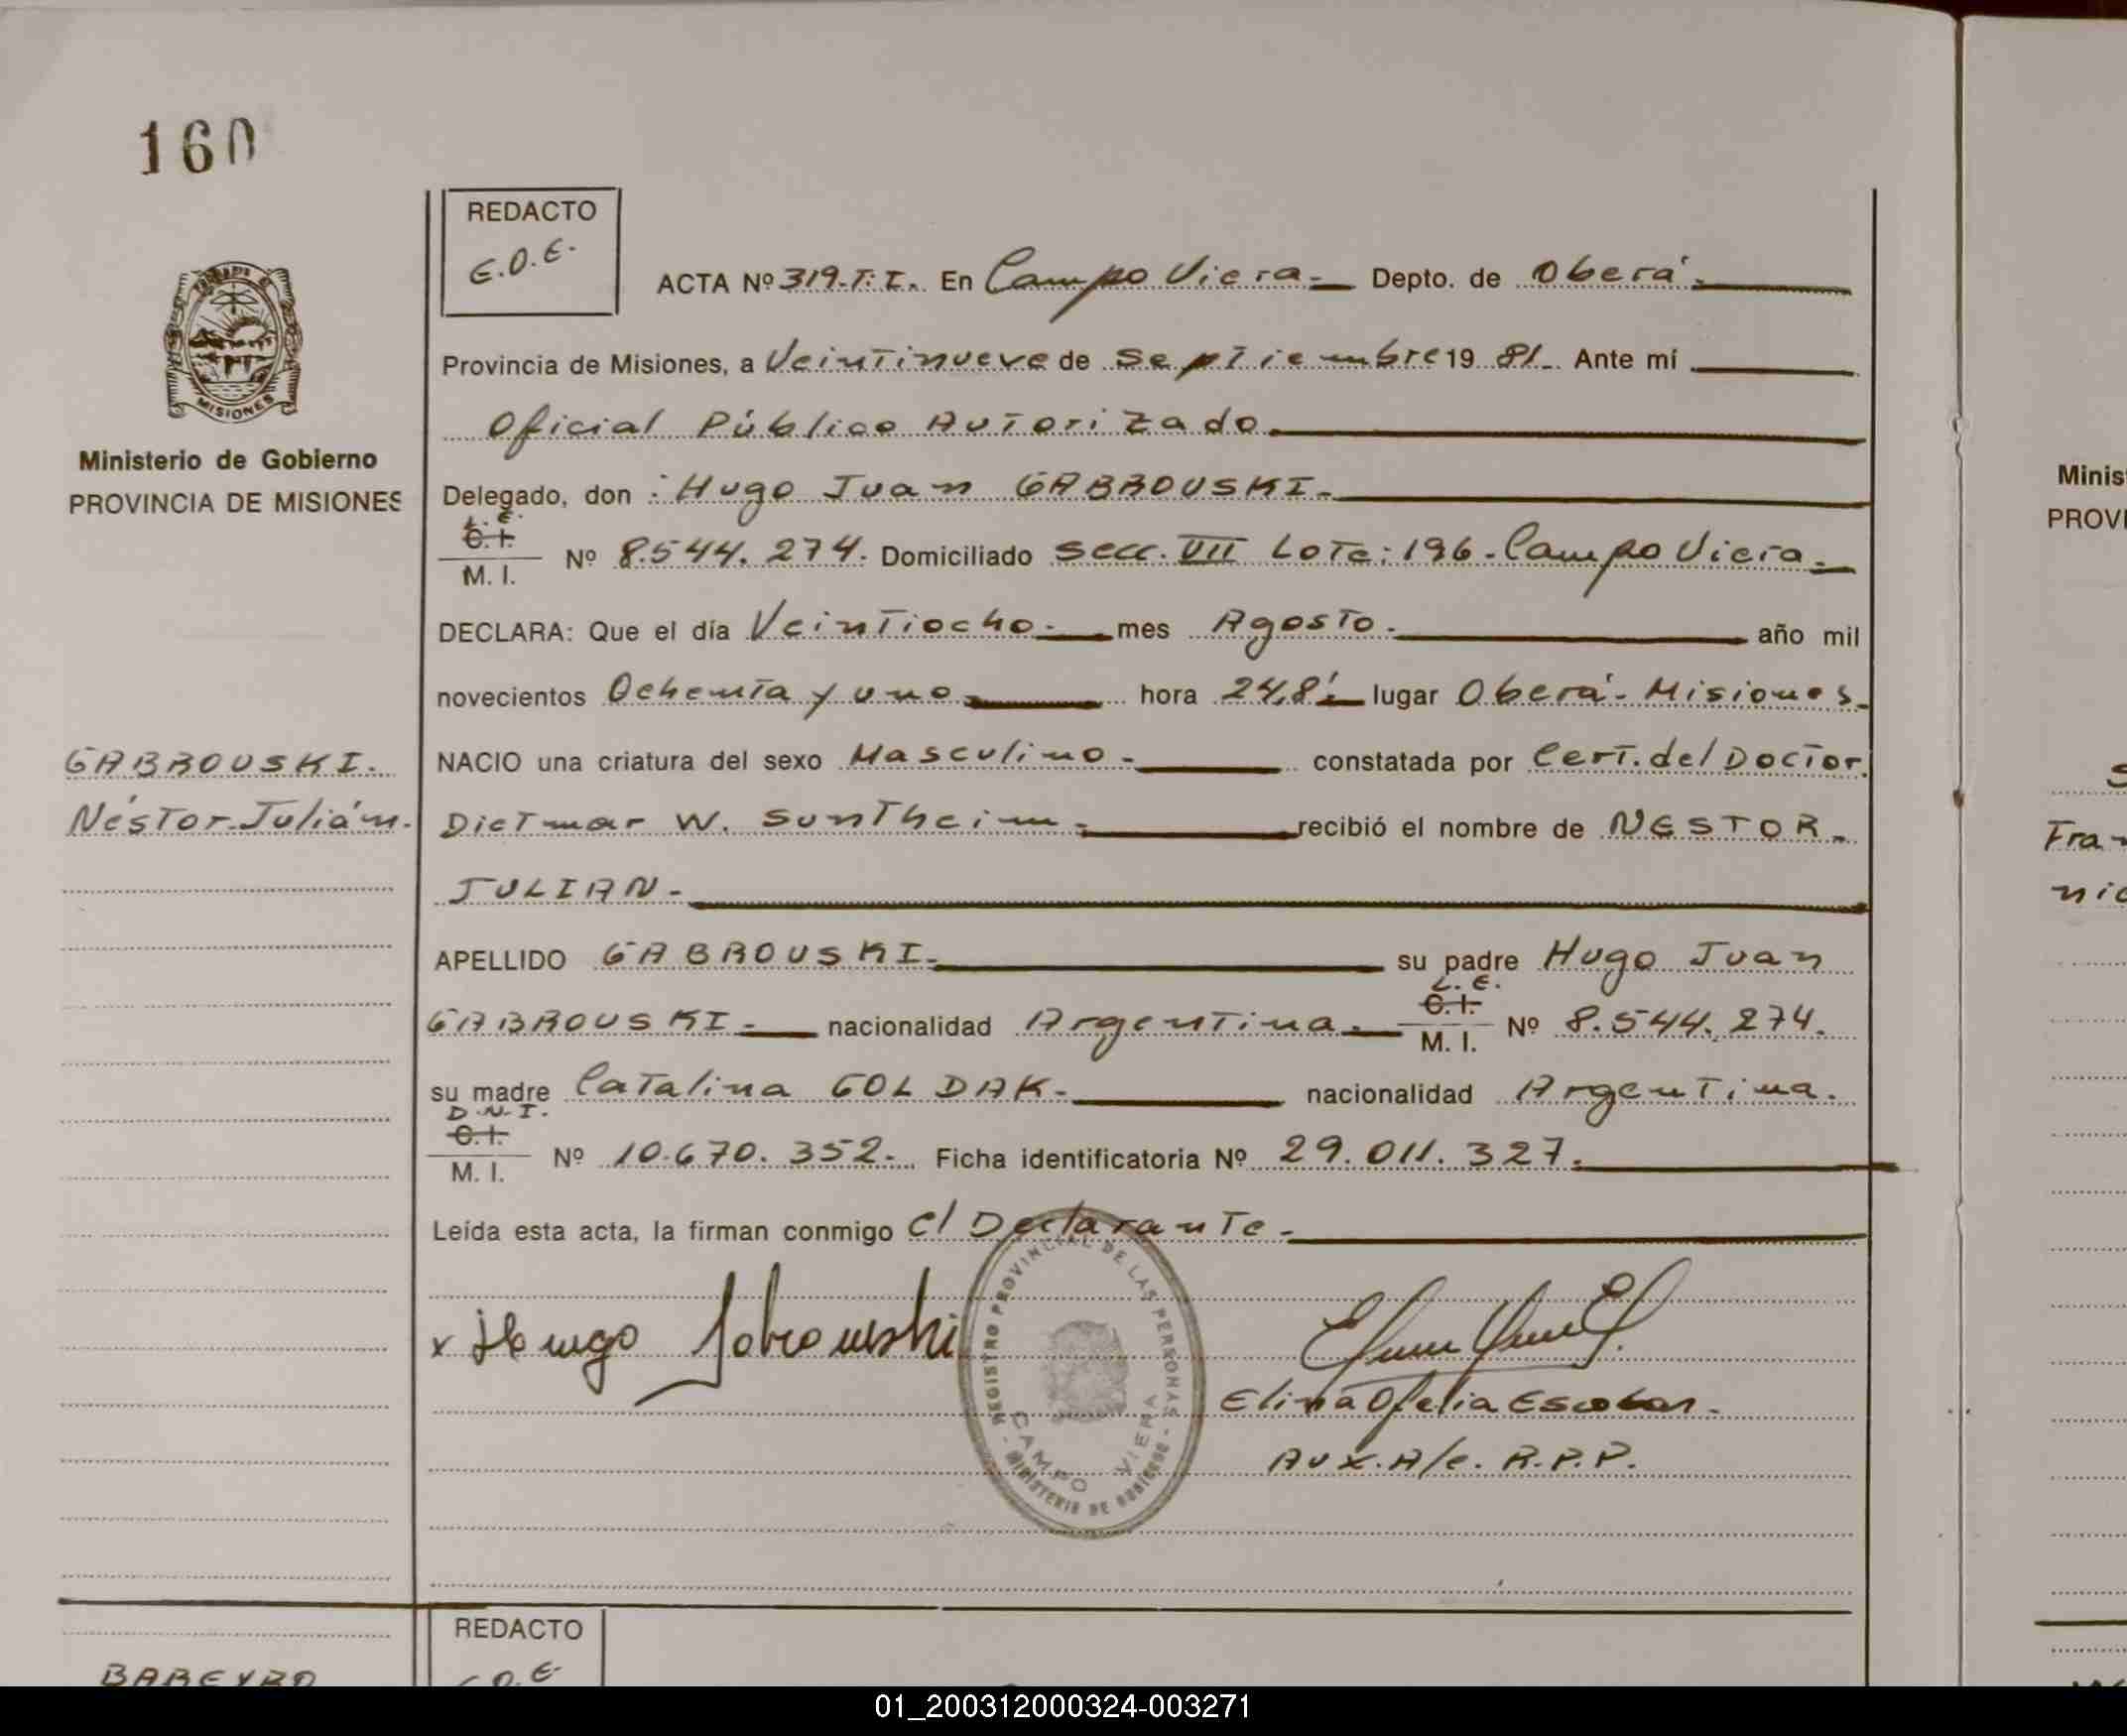 160
REDACTO
E.O.E.
ACTA Nº 319.T:I. En Campo Viera.- Depto. de Oberá.-
Provincia de Misiones, a Veintinueve de Septiembre 19 81.- Ante mí
Oficial Público Autorizado.
Delegado, don : Hugo Juan GABROUSKI.-
L.E.
C.I.
M. I. Nº 8.544.274. Domiciliado secc. VII Lote: 196.- Campo Viera.-
DECLARA: Que el día Veintiocho.- mes Agosto.- año mil
novecientos Ochenta y uno.- hora lugar Oberá.- Misiones.-
NACIO una criatura del sexo Masculino.- constatada por Cert. del Doctor.
Dietmar W. Suntheim.- recibió el nombre de NESTOR.-
JULIAN.-
APELLIDO GABROUSKI.- su padre Hugo Juan
L.E.
GABROUSKI.- nacionalidad Argentina.- C.I.
M. I. Nº 8.544.274.
su madre Catalina GOLDAK.- nacionalidad Argentina.
D.N.I.
C.I.
M. I. Nº 10.670.352.- Ficha identificatoria Nº 29.011.327.
Leída esta acta, la firman conmigo el Declarante.-
x Hugo Gabrowski
Elina Ofelia Escobar.-
Aux. A/c. R.P.P.
REGISTRO PROVINCIAL DE LAS PERSONAS - MINISTERIO DE GOBIERNO -
CAMPO VIERA
MISIONES
Ministerio de Gobierno
PROVINCIA DE MISIONES
GABROUSKI.
Néstor Julián.
REDACTO
Minis
PROVI
Fra
01_200312000324-003271